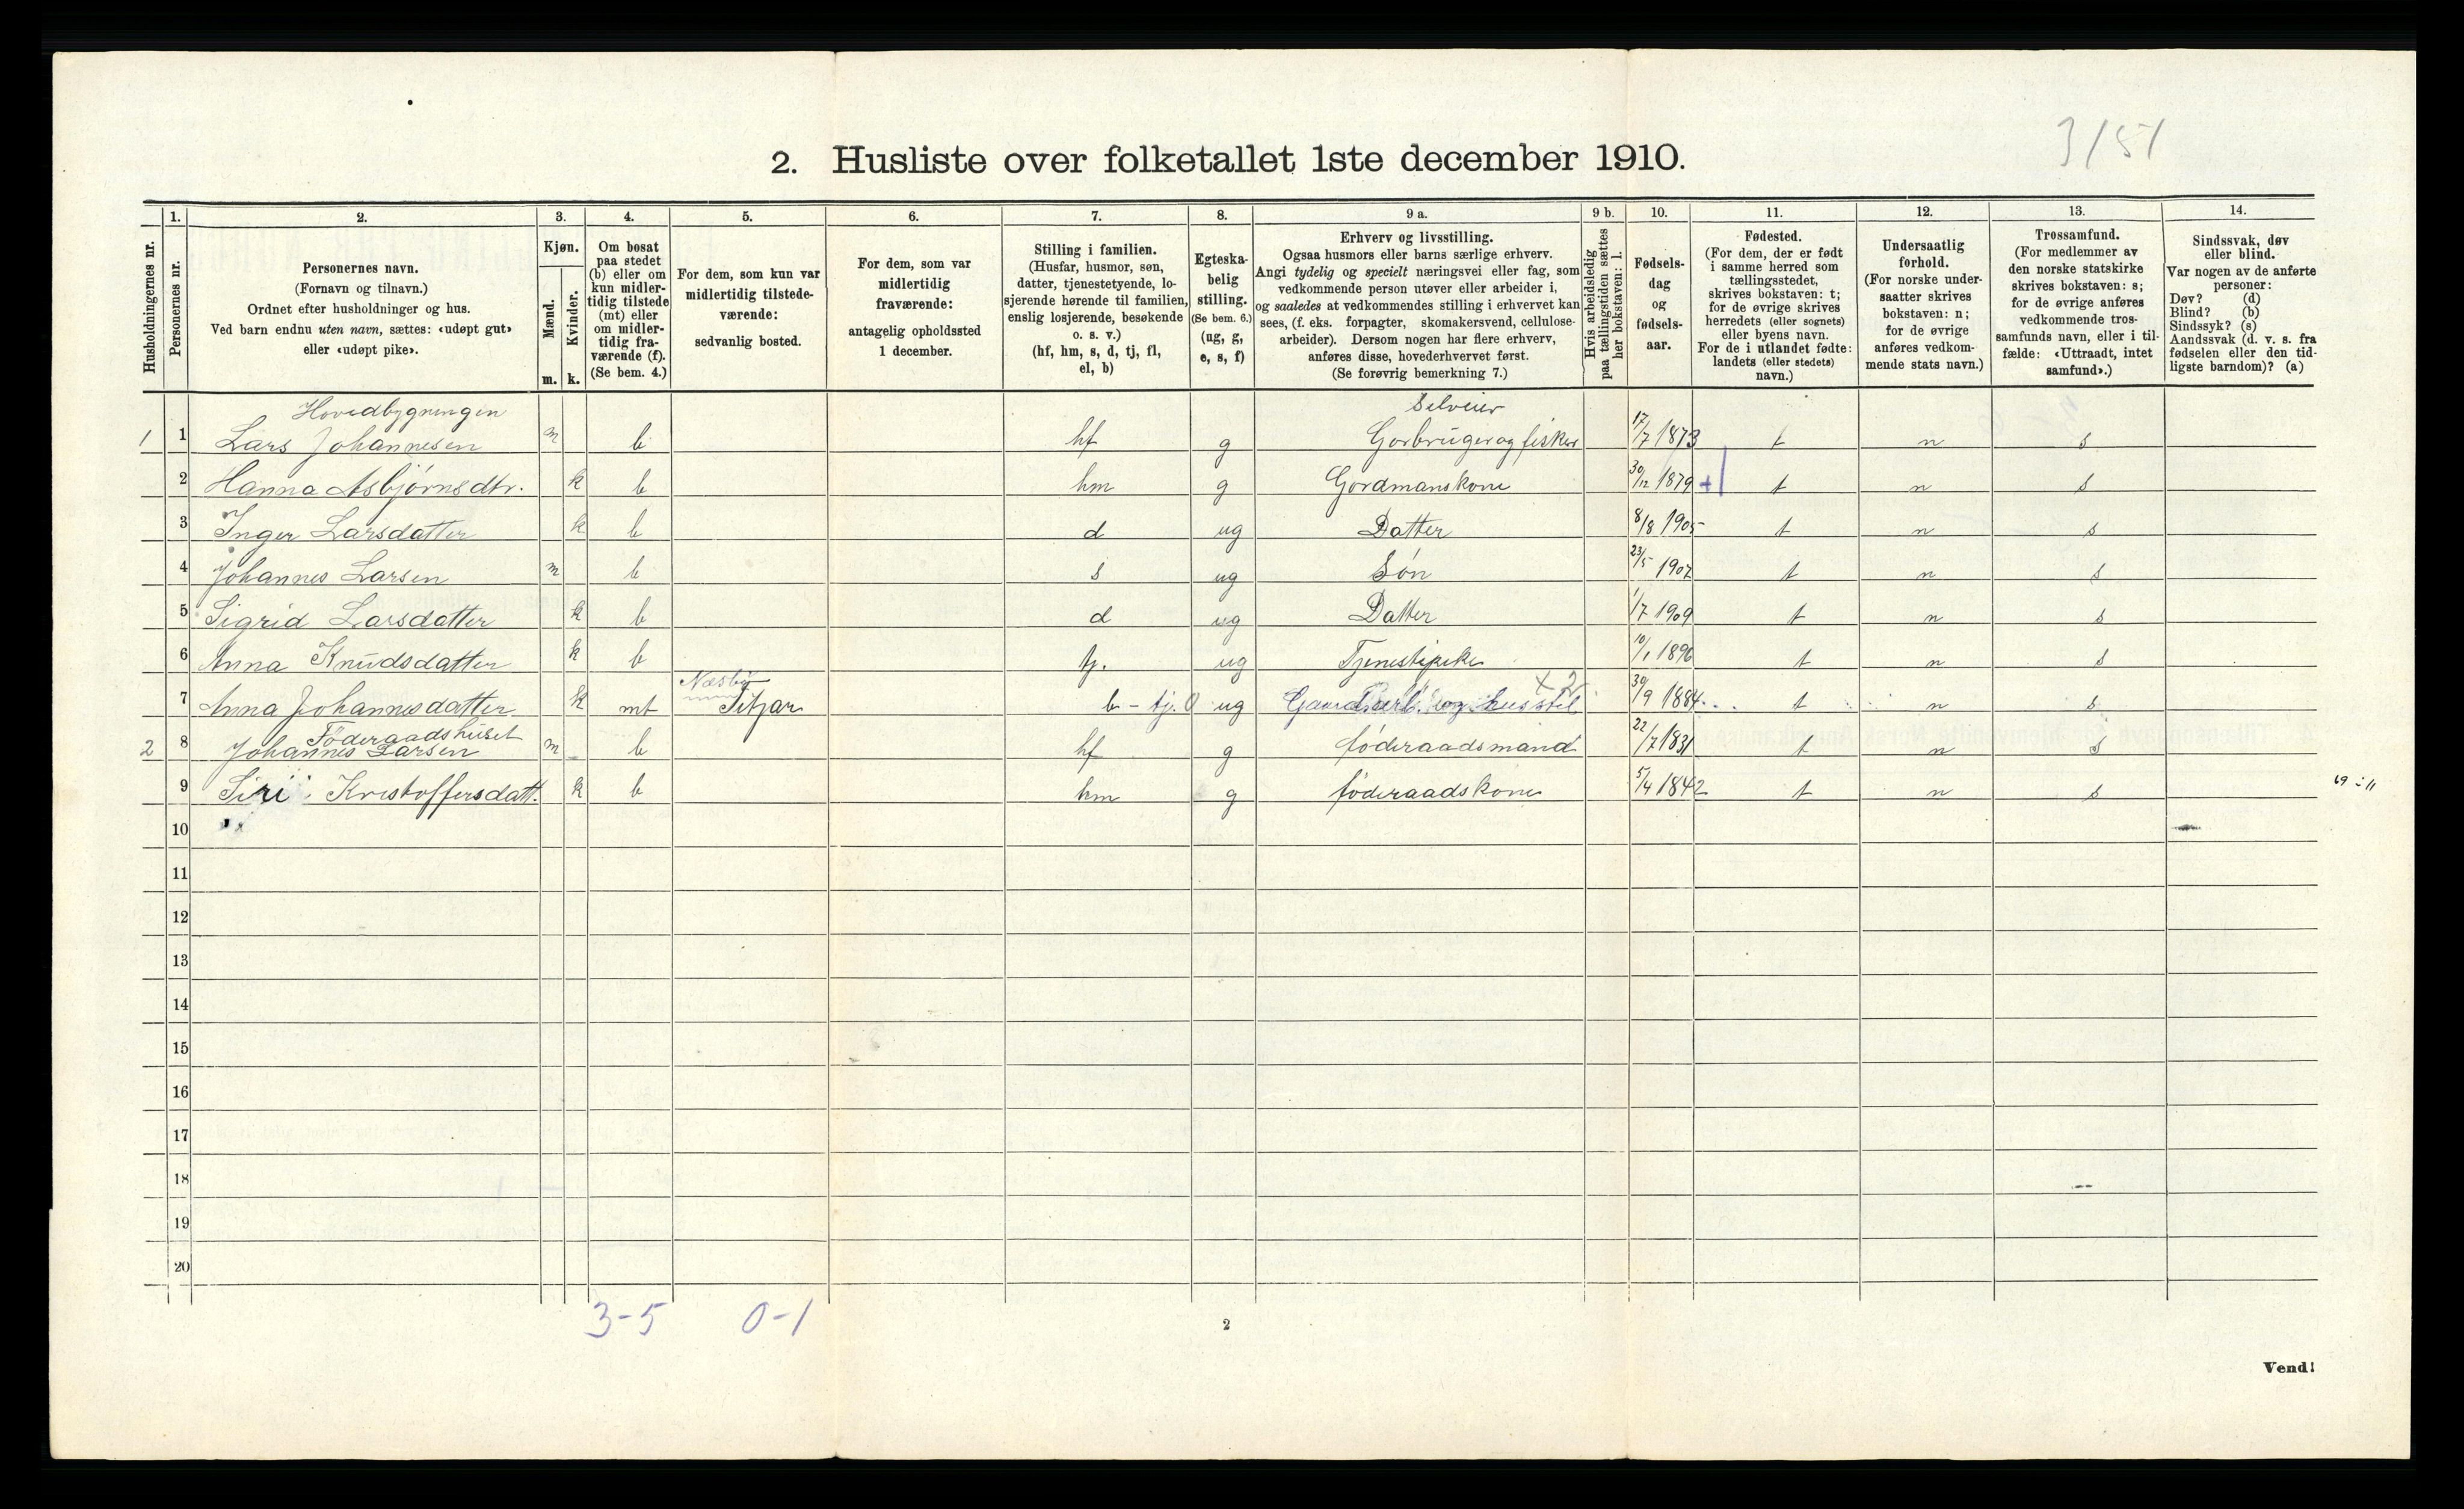 3/51
2. Husliste over folketallet 1ste december 1910.
Husholdningernes nr.
1.
Personernes nr.
2.
Personernes navn.
(Fornavn og tilnavn.)
Ordnet efter husholdninger og hus.
Ved barn endnu uten navn, sættes: «udøpt gut»
eller «udøpt pike».
3.
Kjøn.
Mænd.
Kvinder.
m. k.
4.
Om bosat
paa stedet
(b) eller om
kun midler-
tidig tilstede
(mt) eller
om midler-
tidig fra-
værende (f).
(Se bem. 4.)
5.
For dem, som kun var
midlertidig tilstede-
værende:
sedvanlig bosted.
6.
For dem, som var
midlertidig
fraværende:
antagelig opholdssted
1 december.
7.
Stilling i familien.
(Husfar, husmor, søn,
datter, tjenestetyende, lo-
sjerende hørende til familien,
enslig losjerende, besøkende
o. s. v.)
(hf, hm, s, d, tj, fl,
el, b)
8.
Egteska-
belig
stilling.
(Se bem. 6.)
(ug, g,
e, s, f)
9 a.
Erhverv og livsstilling.
Ogsaa husmors eller barns særlige erhverv.
Angi tydelig og specielt næringsvei eller fag, som
vedkommende person utøver eller arbeider i,
og saaledes at vedkommendes stilling i erhvervet kan
sees, (f. eks. forpagter, skomakersvend, cellulose-
arbeider). Dersom nogen har flere erhverv,
anføres disse, hovederhvervet først.
(Se forøvrig bemerkning 7.)
9 b.
Hvis arbeidsledig
paa tællingstiden sættes
her bokstaven: l.
10.
Fødsels-
dag
og
fødsels-
aar.
11.
Fødested.
(For dem, der er født
i samme herred som
tællingsstedet,
skrives bokstaven: t;
for de øvrige skrives
herredets (eller sognets)
eller byens navn.
For de i utlandet fødte:
landets (eller stedets)
navn.)
12.
Undersaatlig
forhold.
(For norske under-
saatter skrives
bokstaven: n;
for de øvrige
anføres vedkom-
mende stats navn.)
13.
Trossamfund.
(For medlemmer av
den norske statskirke
skrives bokstaven: s;
for de øvrige anføres
vedkommende tros-
samfunds navn, eller i til-
fælde: «Uttraadt, intet
samfund».)
14.
Sindssvak, døv
eller blind.
Var nogen av de anførte
personer:
Døv? (d)
Blind? (b)
Sindssyk? (s)
Aandssvak (d. v. s. fra
fødselen eller den tid-
ligste barndom)? (a)
Hovedbygningen Selveier
1 1 Lars Johannesen m b hf g Gorbruger og fisker 17/7 1873 t n s
2 Hanna Asbjørnsdtr. k b hm g Gordmanskone 30/12 1879 +1 t n s
3 Inger Larsdatter k b d ug Datter 8/8 1905 t n s
4 Johannes Larsen m b s ug Søn 23/5 1907 t n s
5 Sigrid Larsdatter k b d ug Datter 1/7 1909 t n s
6 Anna Knudsdatter k b tj. ug Tjenestepike 10/1 1896 t n s
7 Anna Johannesdatter k mt Fitjar b - tj. 0 ug 30/9 1884 t n s
Føderaadshuset
2 8 Johannes Larsen m b hf g føderaadsmand 22/7 1831 t n s
9 Siri Kristoffersdatt. k b hm g føderaadskone 5/4 1842 t n s
10
11
12
13
14
15
16
17
18
19
20
3-5 0-1
2
Vend!